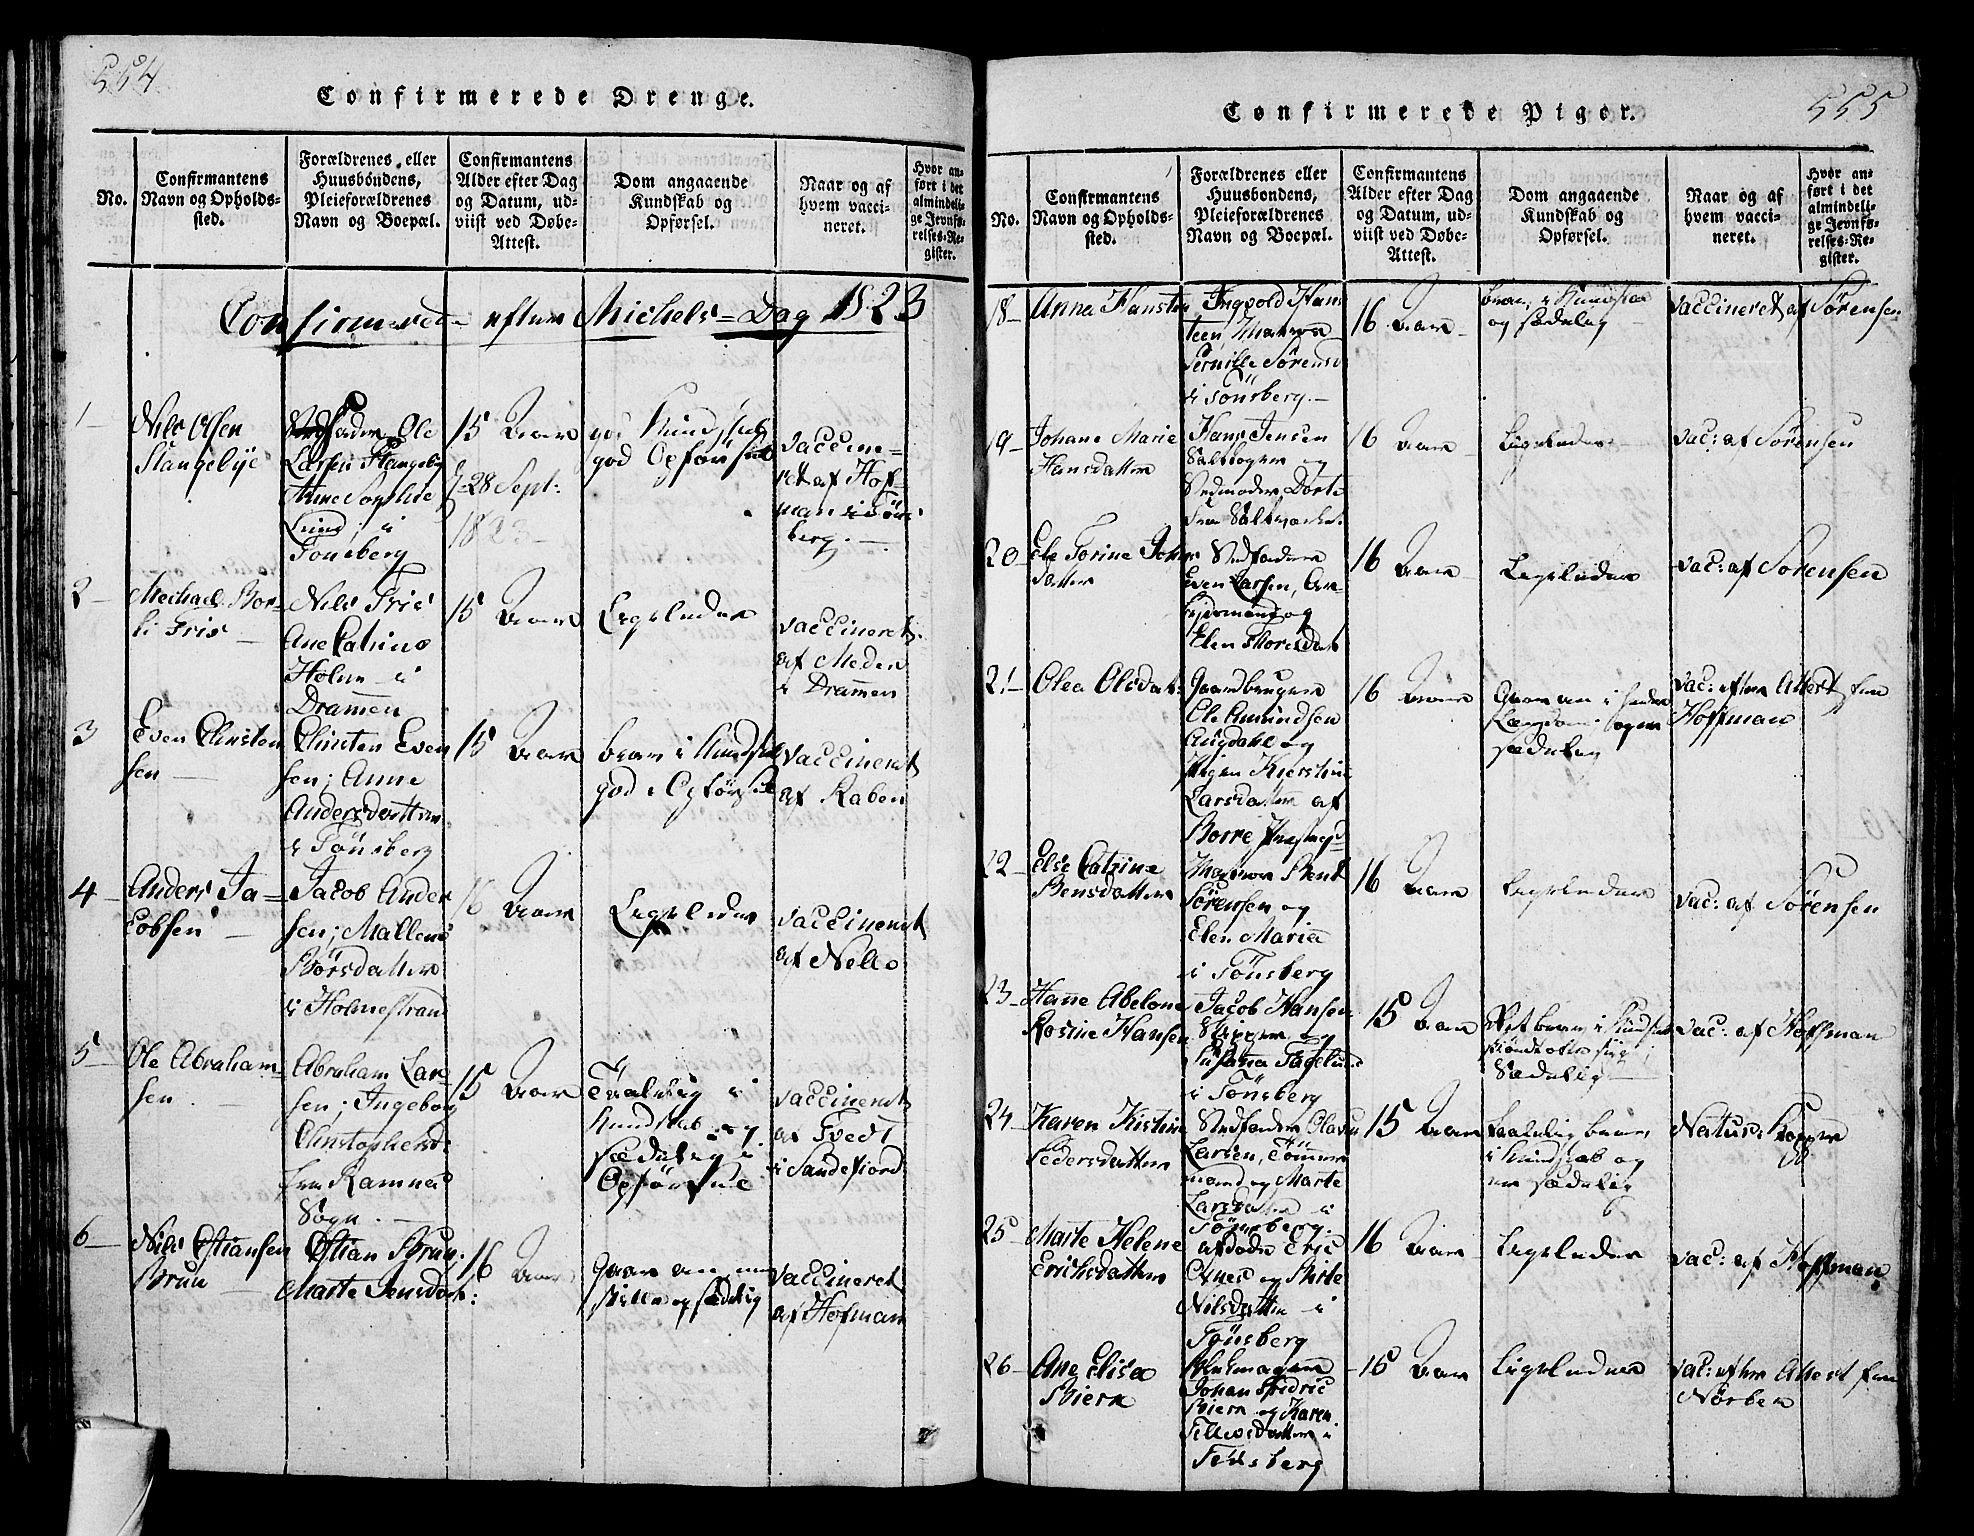 554
Confirmerede Drenge.
No.
Confirmantens
Navn og Opholds-
sted.
Forældrenes eller
Huusbondens,
Pleieforældrenes
Navn og Boepæl.
Confirmantens
Alder efter Dag
og Datum, ud-
viist ved Døbe-
Attest.
Dom angaaende
Kundskab og
Opførsel.
Naar og af
hvem vacci-
neret.
Hvor an-
ført i det
almindeli-
ge Jevnfø-
relses-Re-
gister.
Confirmerede efter Michels-Dag 1823
1
Nils Olsen
Stangebye
Stedfader Ole
Larsen Stangeby
Anne Sophie
Lind i
Tonsberg
15 Aar
28 Sept:
1823
god Kundskab
god Opførsel
Vaccine-
ret af Hof-
man i Tøns
berg.
2
Michael Bor-
Friis
Nils Friis
Ane Catrine
Holm i
Drammen
15 Aar
Ligeleder
vaccineret
af Meden
i Drammen
3
Even Christen
sen
Christen Even
sen; Anne
Andersdatter
i Tönsberg
15 Aar
brav i Kundskab
god i Opførsel
vaccineret
af Raben
4
Anders Ja-
cobsen
Jacob Ander
sen; Mallene
Börsdatter
i Holmestrand
16 Aar
Ligeleder
vaccineret
af Nello
5
Ole Abraham-
sen
Abraham Lar-
sen; Ingeborg
Christophersd:
fra Ramnes
Sogn.
15 Aar
Taalelig i
Kundskab og
sædelig i
Opførsel
vaccineret
af Tvedt
i Sandefiord
6
Nils Cstiansen
Brun
Cstian Brun;
Marte Jensdat:
16 Aar
Gaar an, men
stille og sædelig
vaccineret
af Hofman
555
Confirmerede Piger.
No.
Confirmantens
Navn og Opholds-
sted.
Forældrenes eller
Huusbondens,
Pleieforældrenes
Navn og Boepæl.
Confirmantens
Alder efter Dag
og Datum, ud-
viist ved Døbe-
Attest.
Dom angaaende
Kundskab og
Opførsel.
Naar og af
hvem vacci-
neret.
Hvor an-
ført i det
almindeli-
ge Jevnfø-
relses-Re-
gister.
18
Anna Hansteen
Ingvold Han
steen, Matros
Pernille Sørensd
i Tönsberg.
16 Aar
brav i Kundskab
og sædelig
vaccineret af Sørensen
19
Johane Marie
Hansdatter
Hans Jensen
Saltkoger og
Stedmoder Dorte
fra Saltværket
16 Aar
Ligeleder
vac: af Sørensen
20
Ele Torine Johns
datter
Stedfader
Even Larsen, Ar
bejdsmand og
Elen Thoresdat
16 Aar
Ligeleder
vac: af Sørensen
21
Olea Olsdat:
Gaardbruger
Ole Amundsen
Augdahl og
Pigen Kierstine
Larsdatter af
Borre Præstegd
16 Aar
Gaar an i
Lærdom, og
sædelig
vac: efter Attest fra
Hoffman
22
Else Catrine
Bentsdatter
Matros Bent
Sørensen og
Elen Maria
i Tönsberg
16 Aar
Ligeleder
vac: af Sörensen
23
Hanne Abelone
Rosine Hansen
Jacob Hansen
Skipper og
Susanna Fagelund
i Tönsberg
15 Aar
Ret brav i Kundskab
Sædelig
vac: af Hoffman
24
Karen Kistine
Pedersdatter
Stedfader Olaus
Larsen, Tömmer
mand og Marte
Larsdatter i
Tönsberg.
15 Aar
taalelig brav
i Kundskab og
er sædelig
Naturl: Kopper
25
Marte Helene
Erichsdatter
afdöde Eric
og Birte
Nilsdatter i
Tönsberg
16 Aar
Ligeleder
vac: af Hoffman
26
Ane Elisa
Biern
Johan Fredric
Biern og Karen
Tellevsdatter i
Tönsberg
15 Aar
Ligeleder
vac: efter Attest fra
Nörben